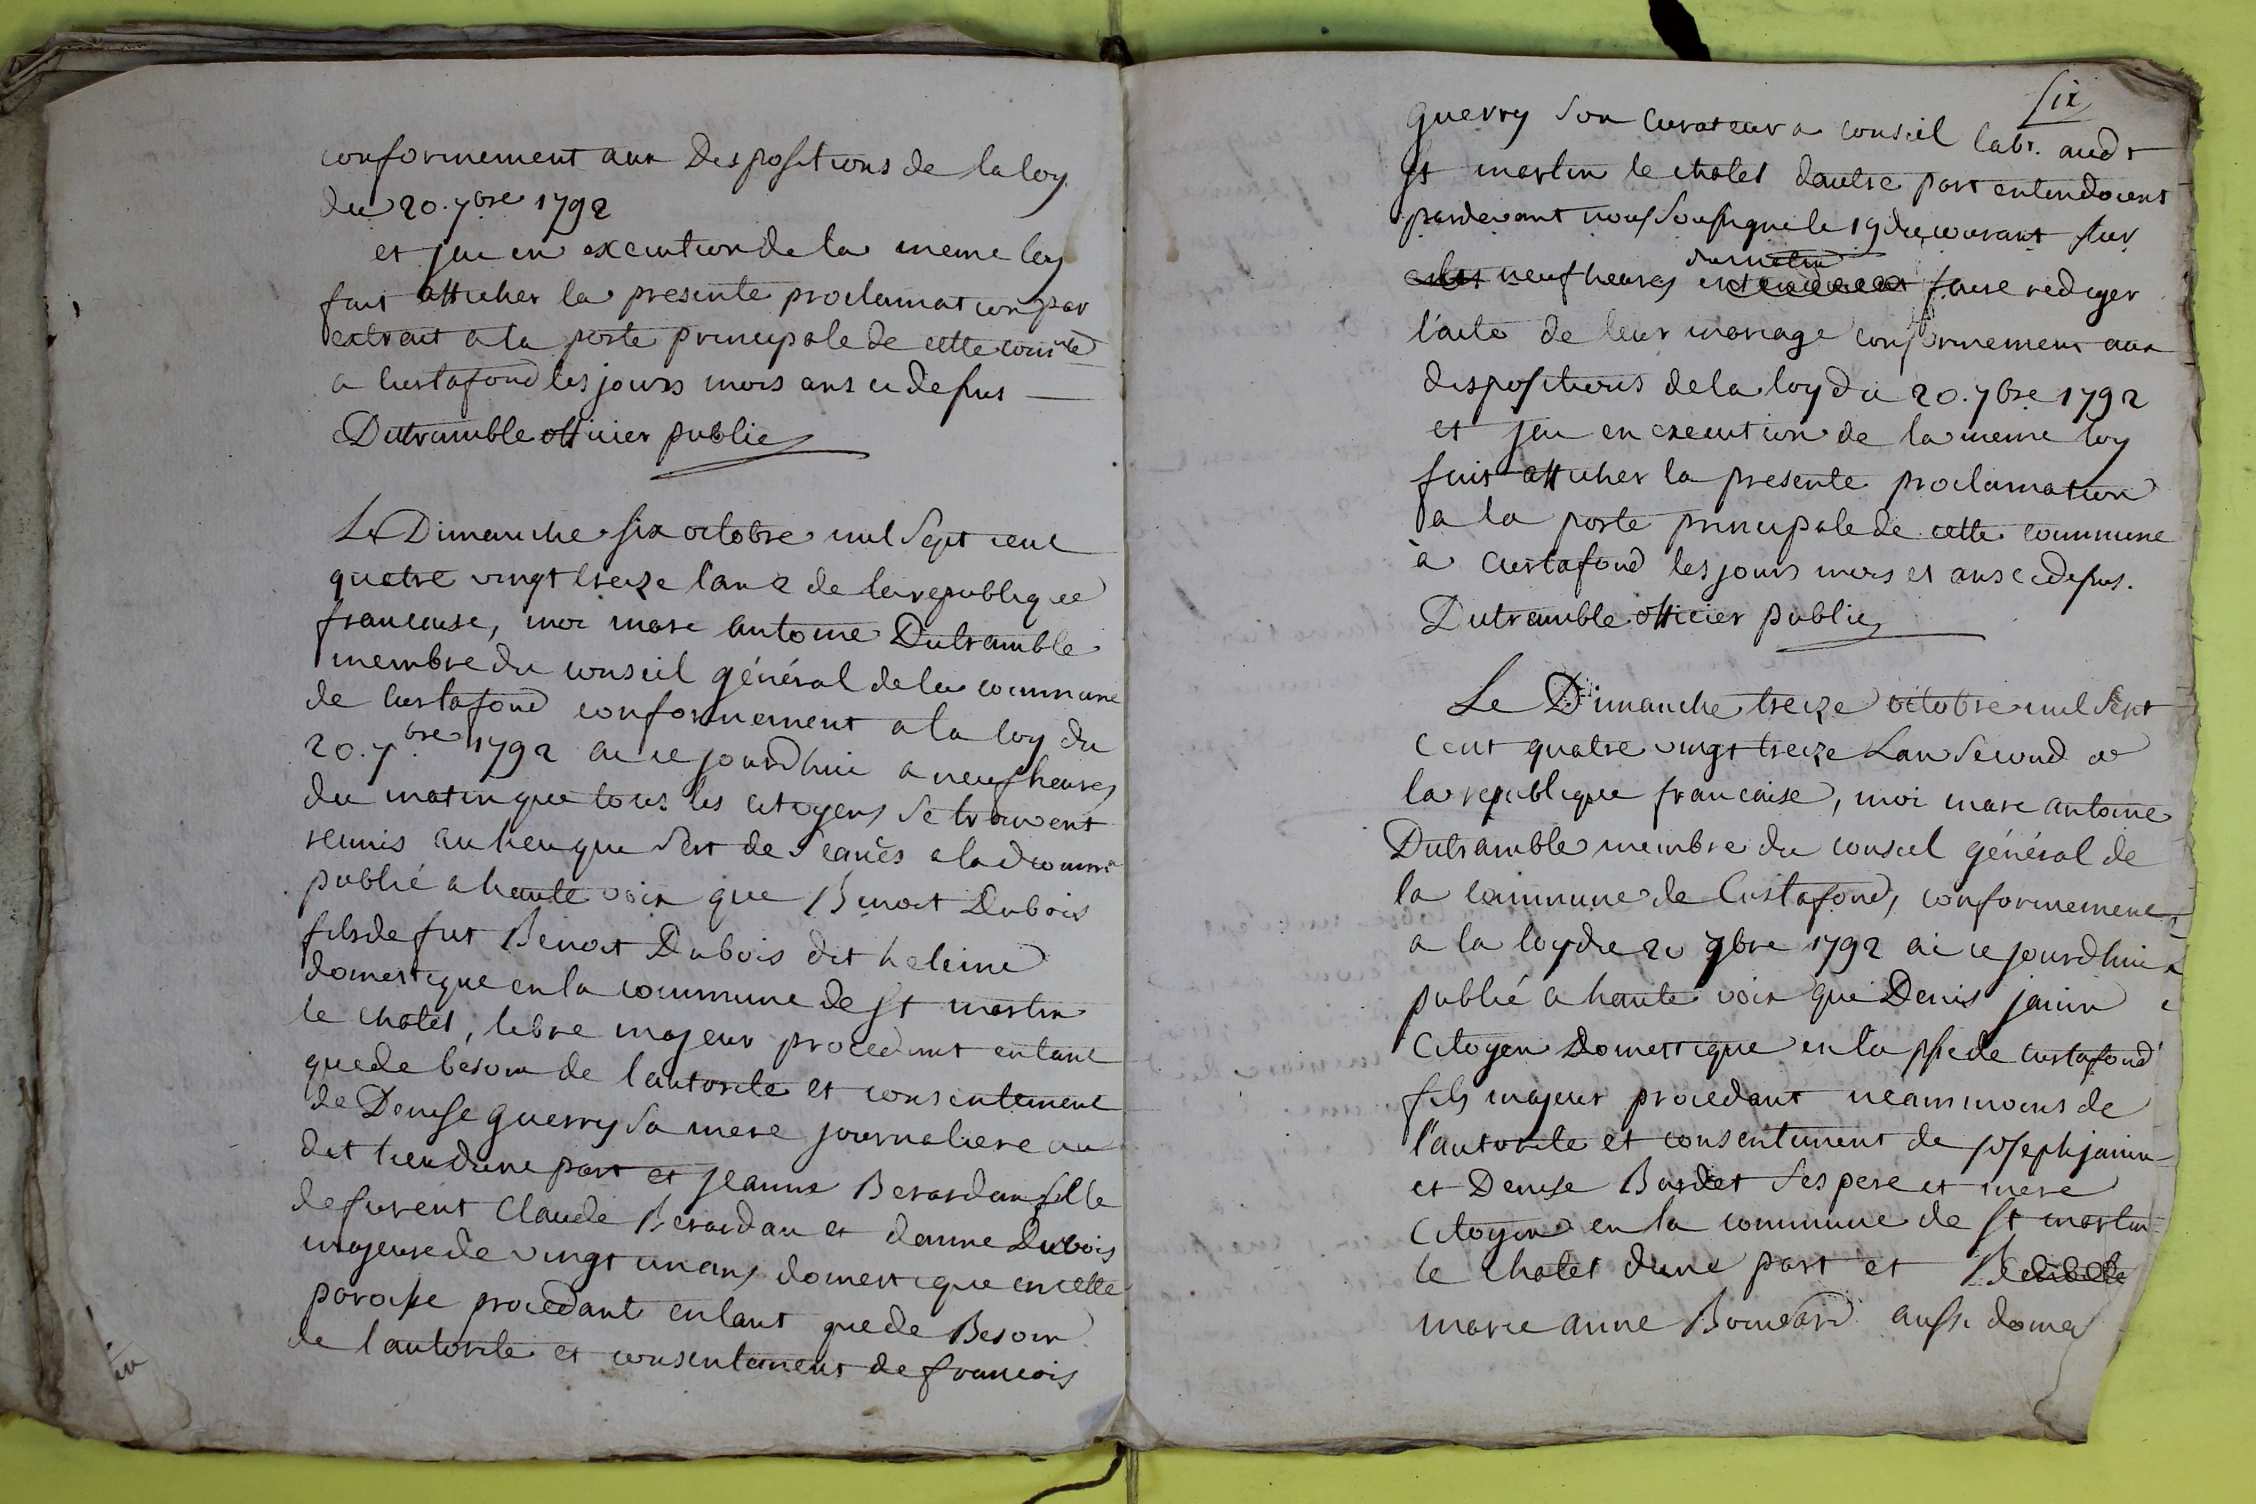 conformement aux Dispositions de la loy
du 20. 7bre 1792
et jai en execution de la meme loy
fait afficher la presente proclamation par
extrait a la porte principale de cette comté
a Curtafond les jours mois ans ci dessus
Dutramble officier public
Le Dimanche six octobre mil Sept cent
quatre vingt treize lan 2 de la republique
francaise, moi marc antoine Dutramble
membre du conseil général de la commune
de Curtafond conformement a la loy du
20. 7bre 1792 ai ce jourdhui a neuf heures
du matin que tous les citoyens se trouvent
reunis au lieu qui sert de seances a lad comm
publié a haute voix que Benoit Dubois
fils de fut Benoit Dubois dit
domestique en la commune de st martin
le chatel, libre majeur procedant entant
que de besoin de l'autorité et consentement
de Denise guerry sa mere journaliere au
dit lieu dune part et jeanne Berardan fille
de furent Claude Berardan et danne Dubois
majeure de vingt un ans domestique en cette
paroisse procedant entant que de Besoin
de l'autorité et consentement de francois
six
guerry son curateur a conseil labr. audt
st martin le chatel dautre part entendoient
pardevant nous soussigné le 19 du courant sur
neuf heures du matin faire rediger
l'acte de leur mariage conformement aux
dispositions de la loy du 20. 7bre 1792
et jai en execution de la meme loy
fait afficher la presente proclamation
a la porte principale de cette commune
à Curtafond les jours mois et ans ci dessus.
Dutramble officier public
Le Dimanche treize octobre mil Sept
cent quatre vingt treize Lan Second de
la republique francaise, moi marc antoine
Dutramble membre du conseil général de
la commune de Curtafond, conformement
a la loy du 20 7bre 1792 ai ce jourdhui
publié a haute voix que Denis janin
Citoyen Domestique en la psse de Curtafond
fils majeur procedant neanmoins de
l'autorité et consentement de joseph janin
et Denise Bardet ses pere et mere
Citoyens en la commune de st martin
le chatel dune part et
marie anne aussi domes